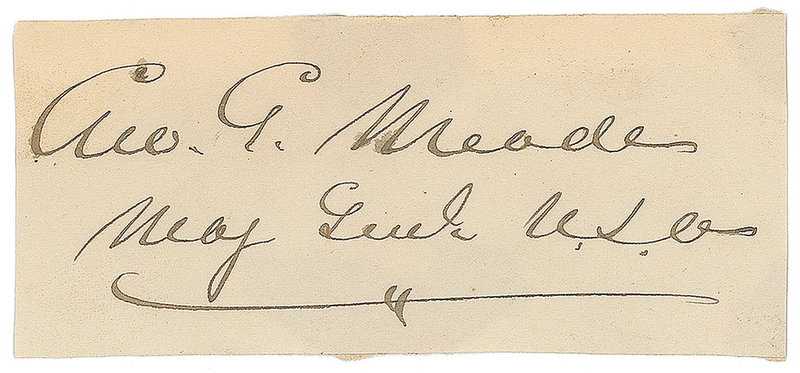 Geo. G. Meade
Maj Genl. U.S.A